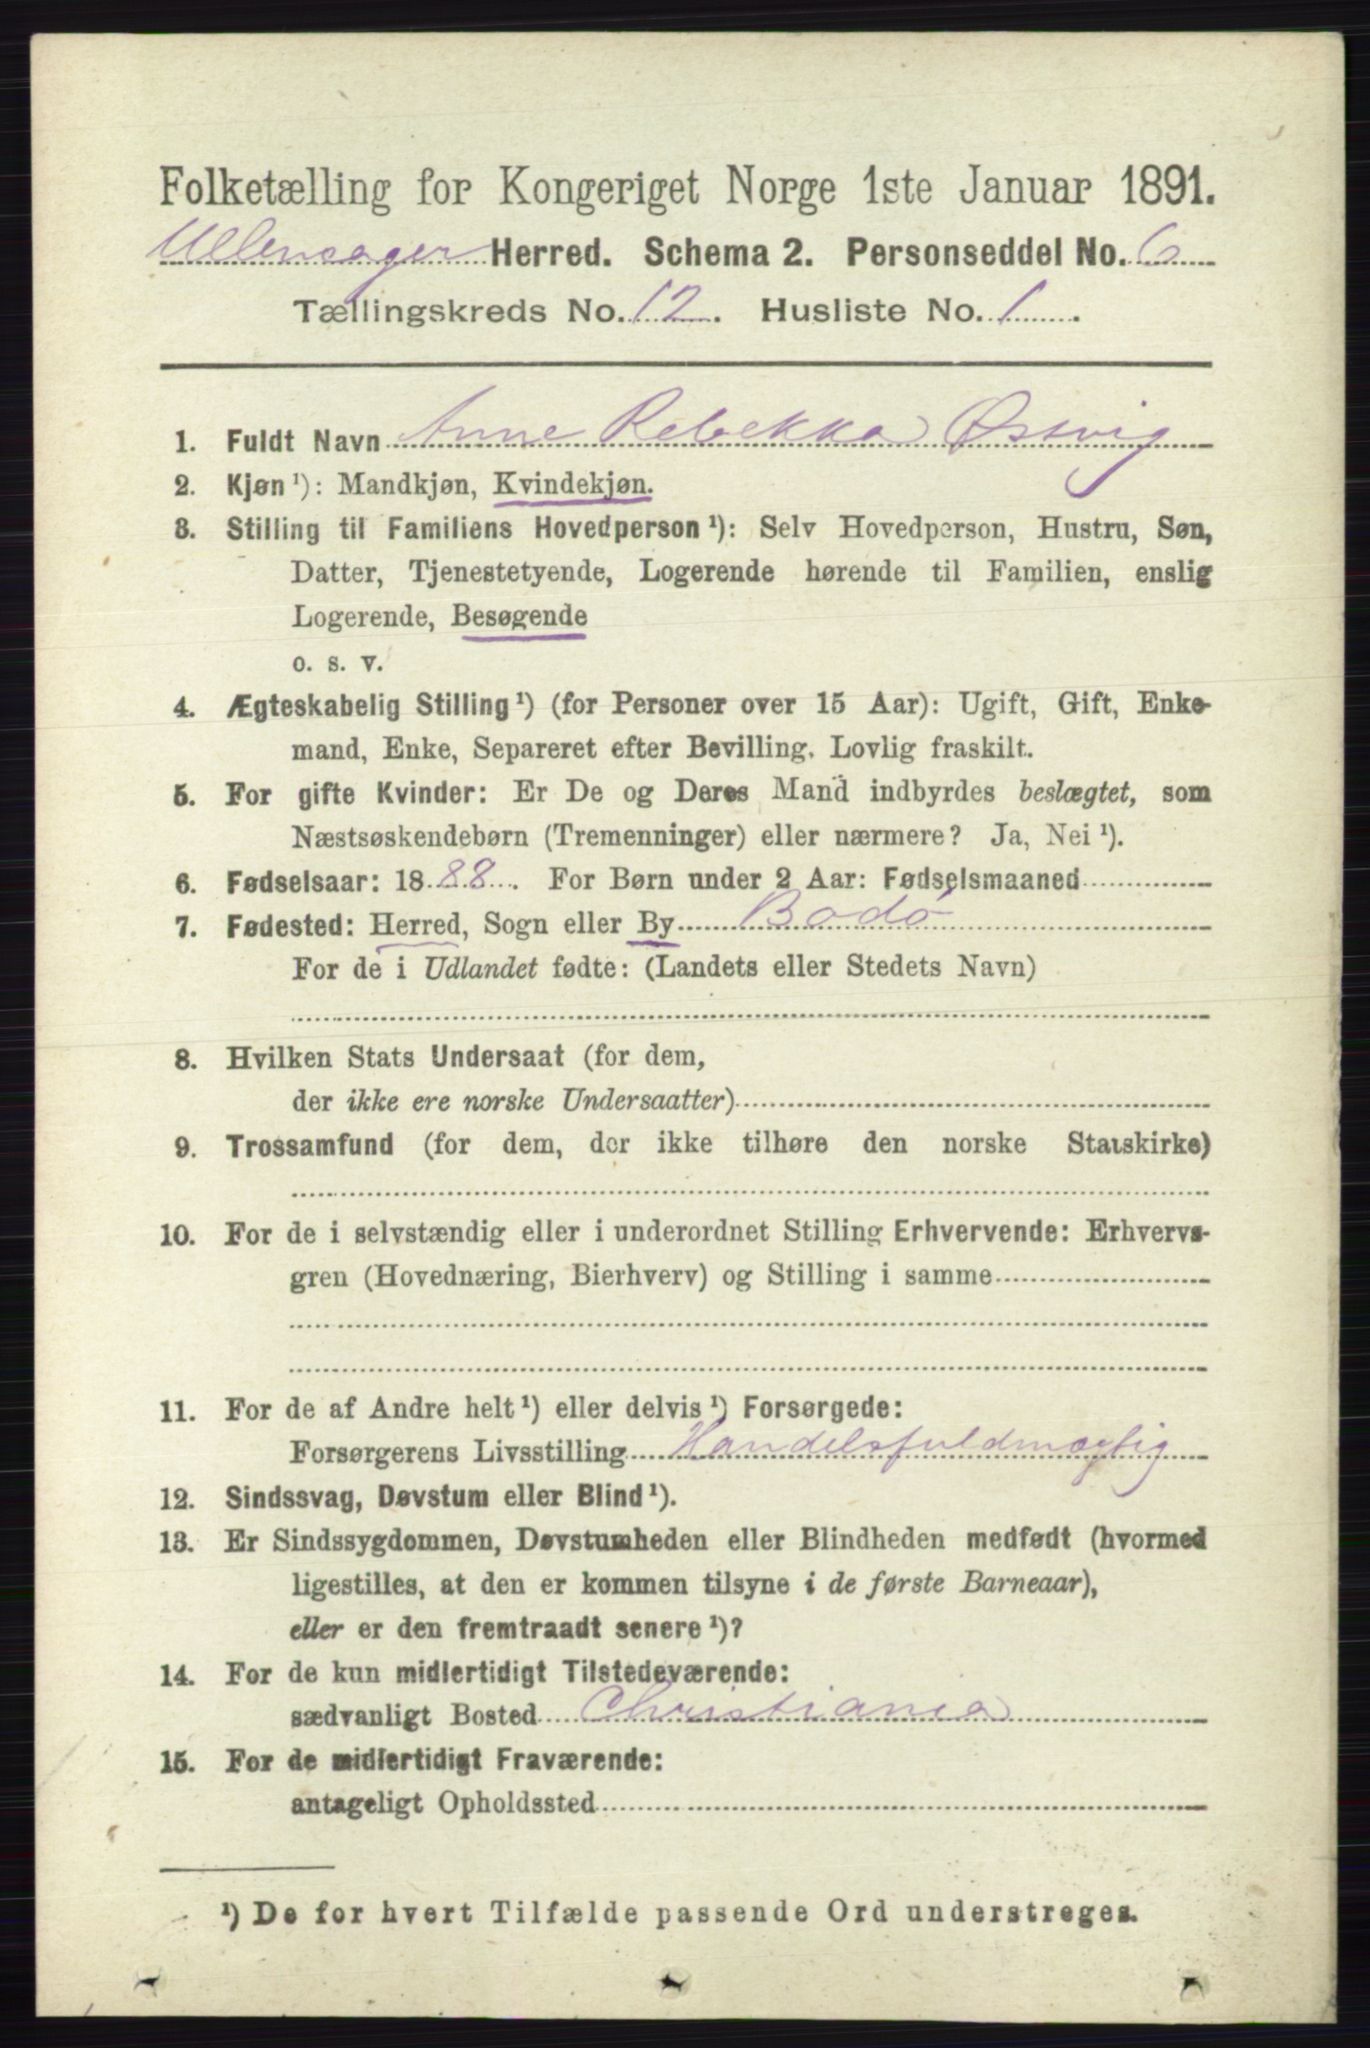 Folketælling for Kongeriget Norge 1ste Januar 1891.
Ullensager Herred. Schema 2. Personseddel No. 6
Tællingskreds No. 12. Husliste No. 1.
1. Fuldt Navn Anne Rebekka Østvig
2. Kjøn¹): Mandkjøn, Kvindekjøn.
3. Stilling til Familiens Hovedperson¹): Selv Hovedperson, Hustru, Søn,
Datter, Tjenestetyende, Logerende hørende til Familien, enslig
Logerende, Besøgende
o. s. v.
4. Ægteskabelig Stilling¹) (for Personer over 15 Aar): Ugift, Gift, Enke-
mand, Enke, Separeret efter Bevilling. Lovlig fraskilt.
5. For gifte Kvinder: Er De og Deres Mand indbyrdes beslægtet, som
Næstsøskendebørn (Tremenninger) eller nærmere? Ja, Nei¹).
6. Fødselsaar: 1888. For Børn under 2 Aar: Fødselsmaaned
7. Fødested: Herred, Sogn eller By Bodø
For de i Udlandet fødte: (Landets eller Stedets Navn)
8. Hvilken Stats Undersaat (for dem,
der ikke ere norske Undersaatter)
9. Trossamfund (for dem, der ikke tilhøre den norske Statskirke)
10. For de i selvstændig eller i underordnet Stilling Erhvervende: Erhvervs-
gren (Hovednæring, Bierhverv) og Stilling i samme
11. For de af Andre helt¹) eller delvis¹) Forsørgede:
Forsørgerens Livsstilling Handelsfuldmægtig
12. Sindssvag, Døvstum eller Blind¹).
13. Er Sindssygdommen, Døvstumheden eller Blindheden medfødt (hvormed
ligestilles, at den er kommen tilsyne i de første Barneaar),
eller er den fremtraadt senere¹)?
14. For de kun midlertidigt Tilstedeværende:
sædvanligt Bosted Christiania
15. For de midlertidigt Fraværende:
antageligt Opholdssted
¹) De for hvert Tilfælde passende Ord understreges.